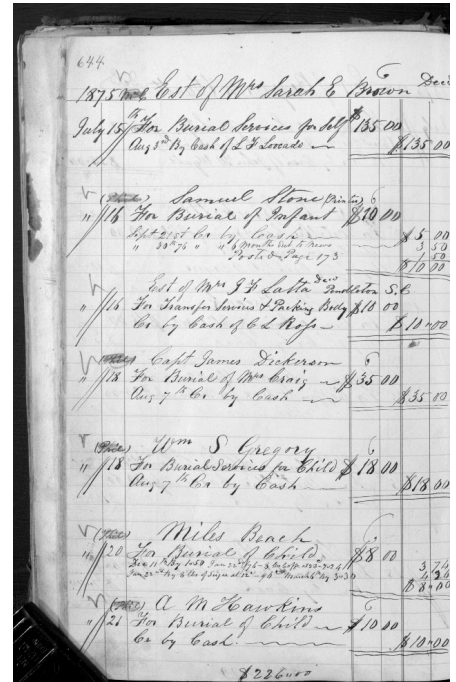 644
1875 Est of Mrs Sarah E Brown Decd
July 15th For Burial Services for Self $135 00
Aug 3rd By Cash of L F $135 00
Samuel Stone (Printer)
" 16 For Burial of Infant $10 00
Sept 21st Cr by Cash $5 00
" 30th 76 " " 6 Month Sub to News 3 50
Posted Page 173 1 50
$10 00
Est of Mrs J F Latta Decd Pendleton S.C
" 16 For Transfer Services & Packing Body $10 00
Cr by Cash of C L Ross $10 "00
Capt James Dickerson
" 18 For Burial of Mrs Craig $35 00
Aug 7th Cr by Cash $35 00
Wm S Gregory
" 18 For Burial Services for Child $18 00
Aug 7th Cr by Cash $18 00
Miles Beach
" 20 For Burial of Child $8 00
Dec 11th By 3 74
Jan 22nd By 4 26
$8 "00
A M Hawkins
" 21 For Burial of Child $10 00
Cr by Cash $10 "00
$226 "00